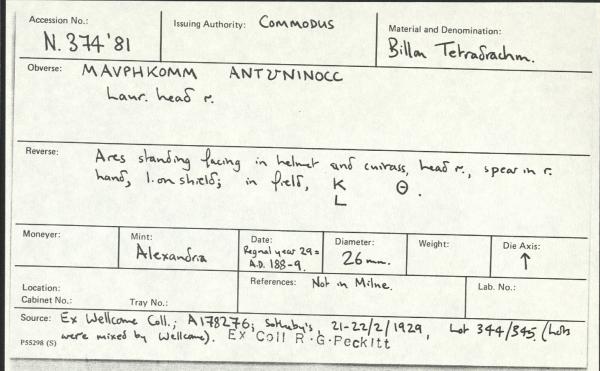 Accession No.: N.374'81
Issuing Authority: COMMODUS
Material and Denomination: Billon Tetradrachm.
Obverse: MAVPHKOMM ANTѠNINOCC
Laur. head r.
Reverse: Ares standing facing in helmet and cuirass, head r., spear in r.
hand, l. on shield; in field, K Θ.
L
Moneyer:
Mint: Alexandria
Date: Regnal year 29 =
A.D. 188-9.
Diameter: 26mm.
Weight:
Die Axis: ↑
Location:
Cabinet No.: Tray No.:
References: Not in Milne.
Lab. No.:
Source: Ex Wellcome Coll.; A178276; Sotheby's, 21-22/2/1929, Lot 344/345 (Lots
were mixed by Wellcome). Ex Coll R.G.Peckitt
P55298 (S)